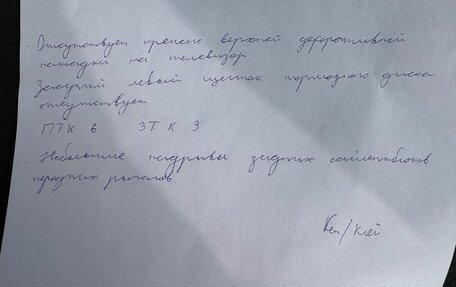 · Отсутствует крепеж верхней декоративной
накладки на телевизор
· Задний левый щиток тормозного диска
отсутствует
· ПТК 6 ЗТК 3
· Небольшие надрывы задних сайлентблоков
передних рычагов.
/Клей